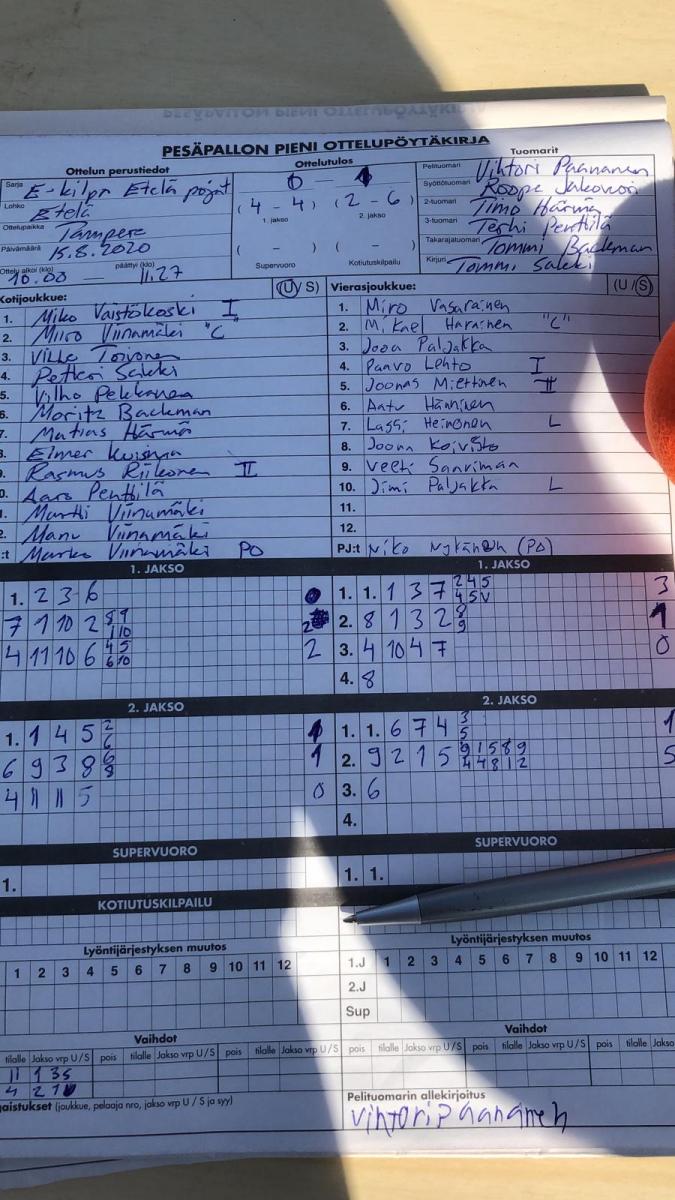 PESÄPALLON PIENI OTTELUPÖYTÄKIRJA
Ottelun perustiedot
Sarja E-kilpa Etelä pojat
Lohko Etelä
Ottelupaikka Tampere
Päivämäärä 15.8.2020
Ottelu alkoi (klo) päättyi (klo)
10.00 11.27
Ottelutulos
0 - 1
(4 - 4) (2 - 6)
1. jakso 2. jakso
( - ) ( - )
Supervuoro Kotiutuskilpailu
Tuomarit
Pelituomari Vihtori Paananen
Syöttötuomari Roope
2-tuomari Timo Härmä
3-tuomari Terhi Penttilä
Takarajatuomari Tommi Backman
Kirjuri Tommi Salcki
Kotijoukkue: (U/S)
1. Miko Vaistökoski I
2. Miiro Viinamäki "C"
3. Ville Toivonen
4. Petteri Salcki
5. Vilho Pekkanen
6. Moritz Backman
7. Matias Härmä
8. Elmer
9. Rasmus Riikonen II
0. Aaro Penttilä
1. Martti Viinamäki
2. Manu Viinamäki
:t Marko Viinamäki PO
Vierasjoukkue: (U/S)
1. Miro Vasarainen
2. Mikael Harainen "C"
3. Joona Paljakka
4. Paavo Lehto I
5. Joonas Miettinen II
6. Aatu Hänninen
7. Lassi Heinonen L
8. Joona Koivisto
9. Veeti Saariman
10. Jimi Paljakka L
11.
12.
PJ:t Niko Nykänen (PO)
1. JAKSO
1. 2 3 6 0
7 1 10 2 8 9 1 10 2
4 11 10 6 4 5 6 10 2
2. JAKSO
1. 1 4 5 2 6 1
6 9 3 8 6 8 1
4 11 1 5 0
SUPERVUORO
1.
KOTIUTUSKILPAILU
1. JAKSO
1. 1. 1 3 7 2 4 5 4 5 V 3
2. 8 1 3 2 8 9 1
3. 4 10 4 7 0
4. 8
2. JAKSO
1. 1. 6 7 4 3 5 1
2. 9 2 1 5 9 1 5 8 9 4 4 8 1 2 5
3. 6
4.
SUPERVUORO
1. 1.
Lyöntijärjestyksen muutos
1 2 3 4 5 6 7 8 9 10 11 12
Lyöntijärjestyksen muutos
1.J 1 2 3 4 5 6 7 8 9 10 11 12
2.J
Sup
Vaihdot
tilalle Jakso vrp U/S pois tilalle Jakso vrp U/S pois tilalle Jakso vrp U/S
11 1 3S
4 2 1
Vaihdot
pois tilalle Jakso vrp U/S pois tilalle Jakso vrp U/S pois tilalle Jakso
gaistukset (joukkue, pelaaja nro, jakso vrp U / S ja syy)
Pelituomarin allekirjoitus
vihtori paananen